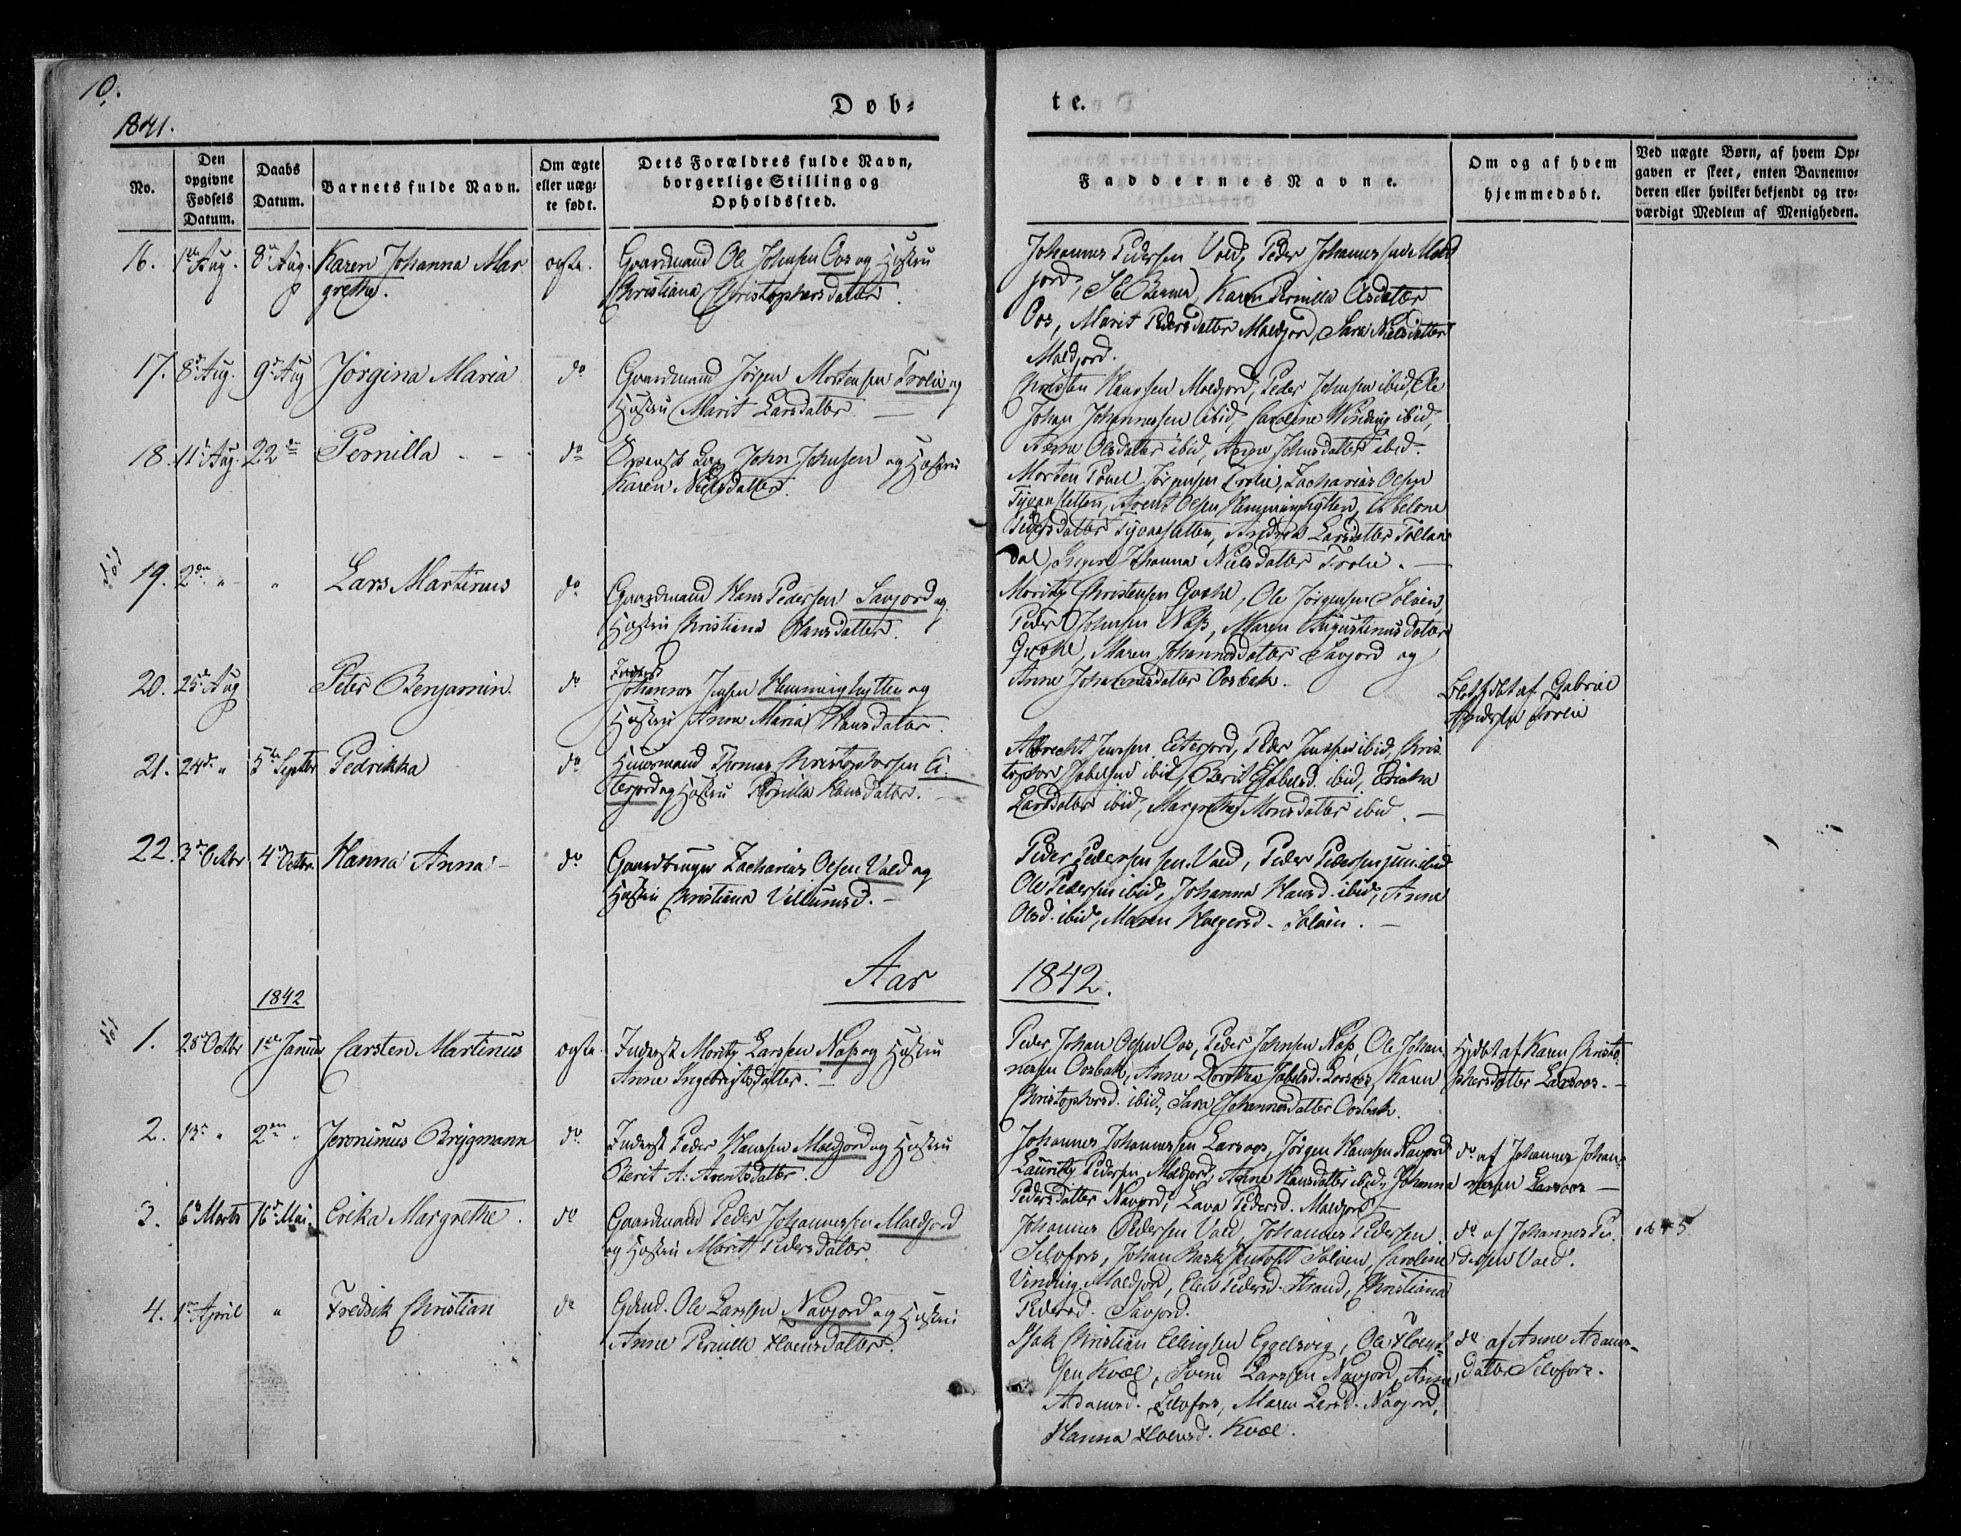 10.
1841.
Døb-
te.
No.
Den opgivne Fødsels Datum.
Daabs Datum.
Barnets fulde Navn.
Om ægte eller uæg- te født.
Dets Forældres fulde Navn, borgerlige Stilling og Opholdssted.
Faddernes Navne.
Om og af hvem hjemmedøbt.
Ved uægte Børn, af hvem Op- gaven er skeet, enten Barnemo- deren eller hvilket bekjendt og tro- værdigt Medlem af Menigheden.
16. 1ste Aug. 8de Aug. Karen Johanna Mar
grethe.
ægte.
Gaardmand Ole Johnsen Oos og Hustru
Christiana Christophersdatter.
Johannes Pedersen Vold, Peder Johannessen Mæld
jord, Karen Pernilla Olsdatter
Oos, Marit Pedersdatter Mældjord, Sara Nielsdatter
Mældjord.
17. 8de Aug. 9de Aug Jørgina Maria
do
Gaardmand Jørgen Mortensen Trolie og
Hustru Marit Larsdatter.
Christen Hanssen Mældjord, Peder Johnsen ibid, Ole
Johan Johannessen ibid, Caroline Winding ibid,
Anne Olsdatter ibid, Anne Johnsdatter ibid.
18. 11te Aug. 22de Pernilla
do
John Johnsen og Hustru
Karen Nielsdatter.
Morten Povel Jørgensen Trolie, Zacharias Olsen
Arent Olsen Hemminghytten, Abelone
Pedersdatter Larsdatter Tollaa
dal, Johanna Nielsdatter Trolie.
19. 2den " " Lars Martinus
do
Gaardmand Hans Pedersen Savjord og
Hustru Christiana Hansdatter.
Moritz Christensen Ole Jørgensen Soløen,
Peder Johnsen Næss, Maren Augustinusdatter
Maren Johannesdatter Savjord og
Anne Johannesdatter Oosbak.
20. 25de Aug Peter Benjamin.
do
Inderst
Johannes Jensen Hemminghytten og
Hustru Anna Maria Hansdatter.
af Gabriel
Andersen Trolie
21. 24de " 5te Septbr Pedrikka
do
Huusmand Thomas Christophersen Ei-
terjord og Hustru Pernilla Hansdatter.
Albrecht Jenssen Eiterjord, Peder Jenssen ibid, Chris
topher Jobelsen ibid, Berit Jobelsd. ibid, Ericha
Larsdatter ibid, Margrethe Monsdatter ibid.
22. 3de Octbr 4de Octbr. Hanna Anna
do
Gaardbruger Zacharias Olsen Vold og
Hustru Christiana Villumsd.
Peder Pedersen sen. Vold, Peder Pedersen jun. ibid
Ole Pedersen ibid, Johanna Hansd. ibid, Anne
Olsd. ibid, Maren Holgersd. Soløen.
Aar
1842.
1842
1. 28de Octbr 1ste Januar Carsten Martinus
ægte.
Inderst Moritz Larssen Næss og Hustru
Anne Ingebrigtsdatter.
Peder Johan Olsen Oos, Peder Johnsen Næs, Ole Johan-
nessen Oosbak, Anne Dorothea Jobelsd. Larsoos, Karen
Christophersd. ibid, Sara Johannesdatter Oosbak.
Hjdbt af Karen Christo-
phersdatter Larsoos.
2. 13de " 2den " Jeronimus Brygmann
do
Inderst Peder Hanssen Mældjord og Hustru
Berit A. Arentsdatter.
Johannes Johannessen Larsoos, Jørgen Hanssen Navjord
Lauritz Pedersen Mældjord, Anne Hansdatter ibid, Johanna
Pedersdatter Navjord, Lava Pedersd. Mældjord
do af Johannes Johan-
nessen Larsoos
3. 6te Marts 16de Mai Erika Margrethe.
do
Gaardmand Peder Johannessen Mældjord
og Hustru Marit Pedersdatter.
Johannes Pedersen Vold, Johannes Pedersen
Selvfors, Johan Soløen, Caroline
Vinding Mældjord, Elen Pedersd. Strand, Christiana
Pedersd. Savjord.
do af Johannes Pe-
dersen Vold.
4. 1ste April " Fredrik Christian
do
Ole Larssen Navjord og Hustru
Anne Pernille Floensdatter.
Isak Christian Ellingsen Eggelsvig, Ole Floend-
sen Kvæl, Svend Larssen Navjord, Anne
Adamsd. Selvfors, Maren Larsd. Navjord,
Hanna Floensd. Kvæl.
do af Anne Adams-
datter Selvfors.